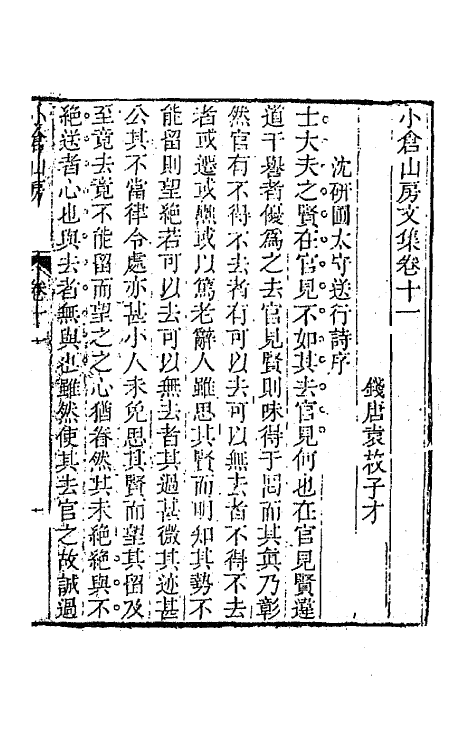 小倉山房文集卷十一
錢唐袁枚子才
沈硏圃太守送行詩序
士大夫之賢在官見不如其去官見何也在官見賢違
道干譽者優爲之去官見賢則味得于囘而其眞乃彰
然官有不得不去者有可以去可以無去者不得不去
者或遷或黜或以篤老辭人雖思其賢而明知其勢不
能留則望絶若可以去可以無去者其過甚微其迹甚
公其不當律令處亦甚小人未免思其賢而望其留及
至竟去竟不能留而望之之心猶眷然其未絶絶與不
絶送者心也與去者無與也雖然使其去官之故誠過
小倉山房 卷十一 一